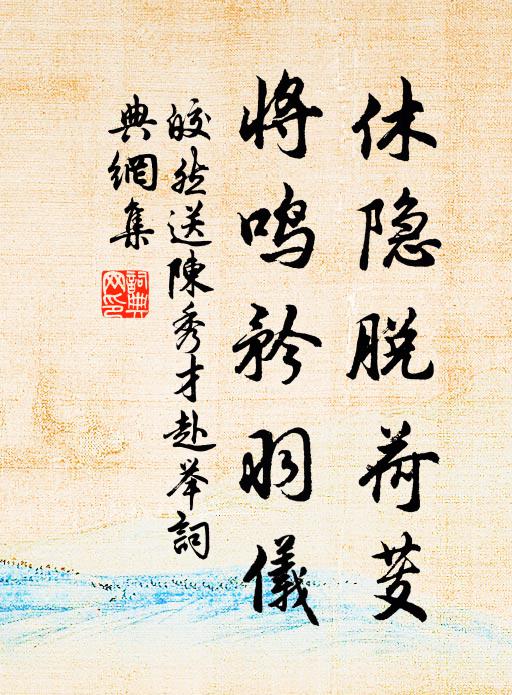 休隐脱荷芰
将鸣矜羽儀
皎然送陳秀才赴举詞
典網集
詞典网印